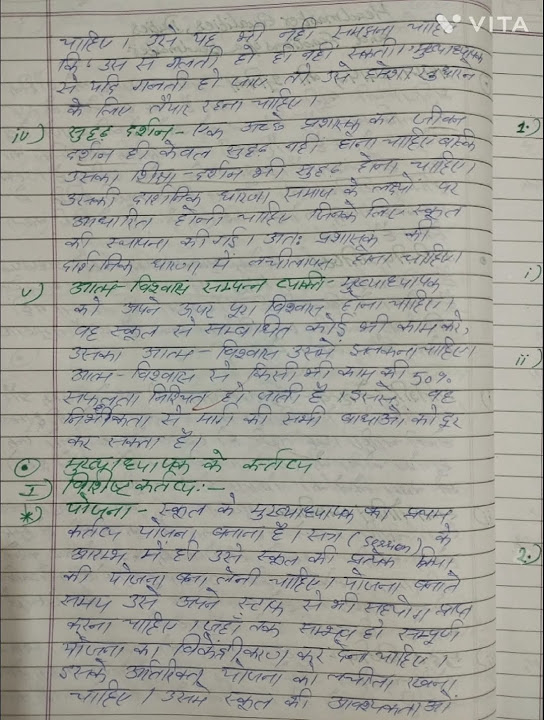 VITA
चाहिए। उसे यह भी नहीं समझना चाहि
कि उस से गलती हो ही नहीं सकती। मुख्याध्यापक
से यदि गलती हो जाए तो उसे हमेशा सुधारने
के लिए तैयार रहना चाहिए।
iv) सुदृढ़ दर्शन - एक अच्छे प्रशासक का जीवन
दर्शन ही केवल सुदृढ़ नहीं होना चाहिए बल्कि
उसका शिक्षा-दर्शन भी सुदृढ़ होना चाहिए।
उसकी दार्शनिक धारणा समाज के लक्ष्यों पर
आधारित होनी चाहिए जिनके लिए स्कूल
की स्थापना की गई। अतः प्रशासक की
दार्शनिक धारणा में लचीलापन होना चाहिए।
v) आत्म-विश्वास सम्पन्न व्यक्ति - मुख्याध्यापक
को अपने ऊपर पूरा विश्वास होना चाहिए।
वह स्कूल से सम्बन्धित कोई भी काम करे,
उसका आत्म-विश्वास उसमें झलकना चाहिए।
आत्म-विश्वास से किसी भी काम की 50%
सफलता निश्चित हो जाती है। इससे वह
निर्भीकता से मार्ग की सभी बाधाओं को दूर
कर सकता है।
मुख्याध्यापक के कर्तव्य
I) विशिष्ट कर्तव्य:-
*) योजना - स्कूल के मुख्याध्यापक का प्रथम
कर्तव्य योजना बनाना है। सत्र (Session) के
आरम्भ में ही उसे स्कूल की प्रत्येक क्रिया
की योजना बना लेनी चाहिए। योजना बनाते
समय उसे अपने स्टाफ से भी सहयोग प्राप्त
करना चाहिए। जहाँ तक सम्भव हो सम्पूर्ण
योजना का विकेंद्रीकरण कर देना चाहिए।
इसके अतिरिक्त योजना का लचीला रखना
चाहिए। उसमें स्कूल की आवश्यकताओं
1.)
i)
ii)
2.)